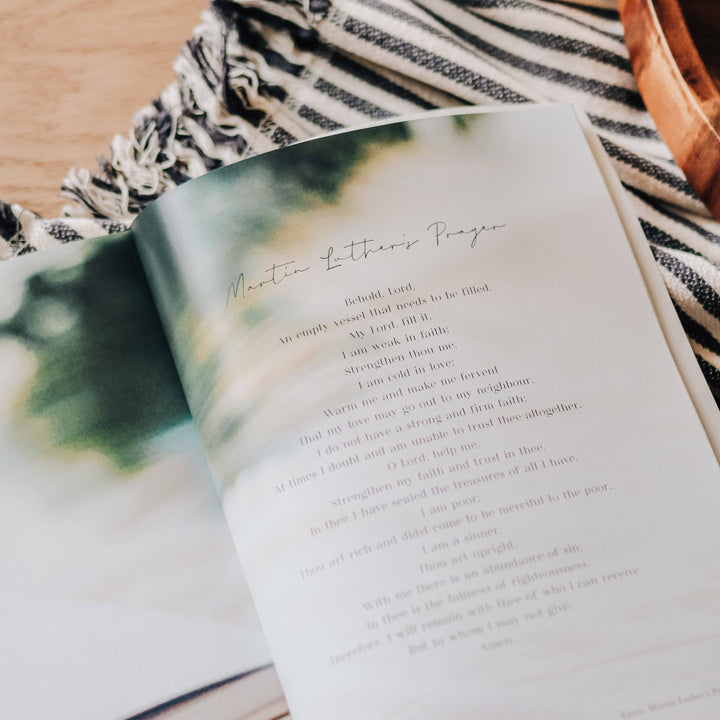 Martin Luther's Prayer
Behold, Lord,
An empty vessel that needs to be filled.
My Lord, fill it.
I am weak in faith;
Strengthen thou me.
I am cold in love;
Warm me and make me fervent
That my love may go out to my neighbour.
I do not have a strong and firm faith;
At times I doubt and am unable to trust thee altogether.
O Lord, help me.
Strengthen my faith and trust in thee.
In thee I have sealed the treasures of all I have.
I am poor;
Thou art rich and didst come to be merciful to the poor.
I am a sinner;
Thou art upright.
With me there is an abundance of sin;
In thee is the fullness of righteousness.
Therefore, I will remain with thee of who I can receive
But to whom I may not give.
Amen.
Martin Luther's